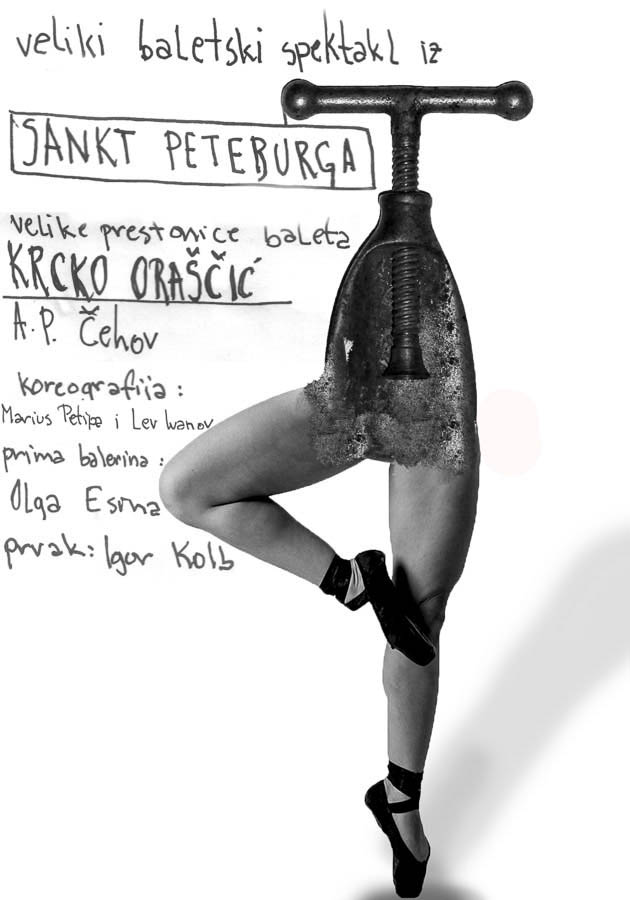 veliki baletski spektakl iz
SANKT PETEBURGA
velike prestonice baleta
KRCKO ORAŠČIĆ
A.P. Čehov
koreografija:
Marius Petipa i Lev Ivanov
prima balerina:
Olga Esina
prvak: Igor Kolb